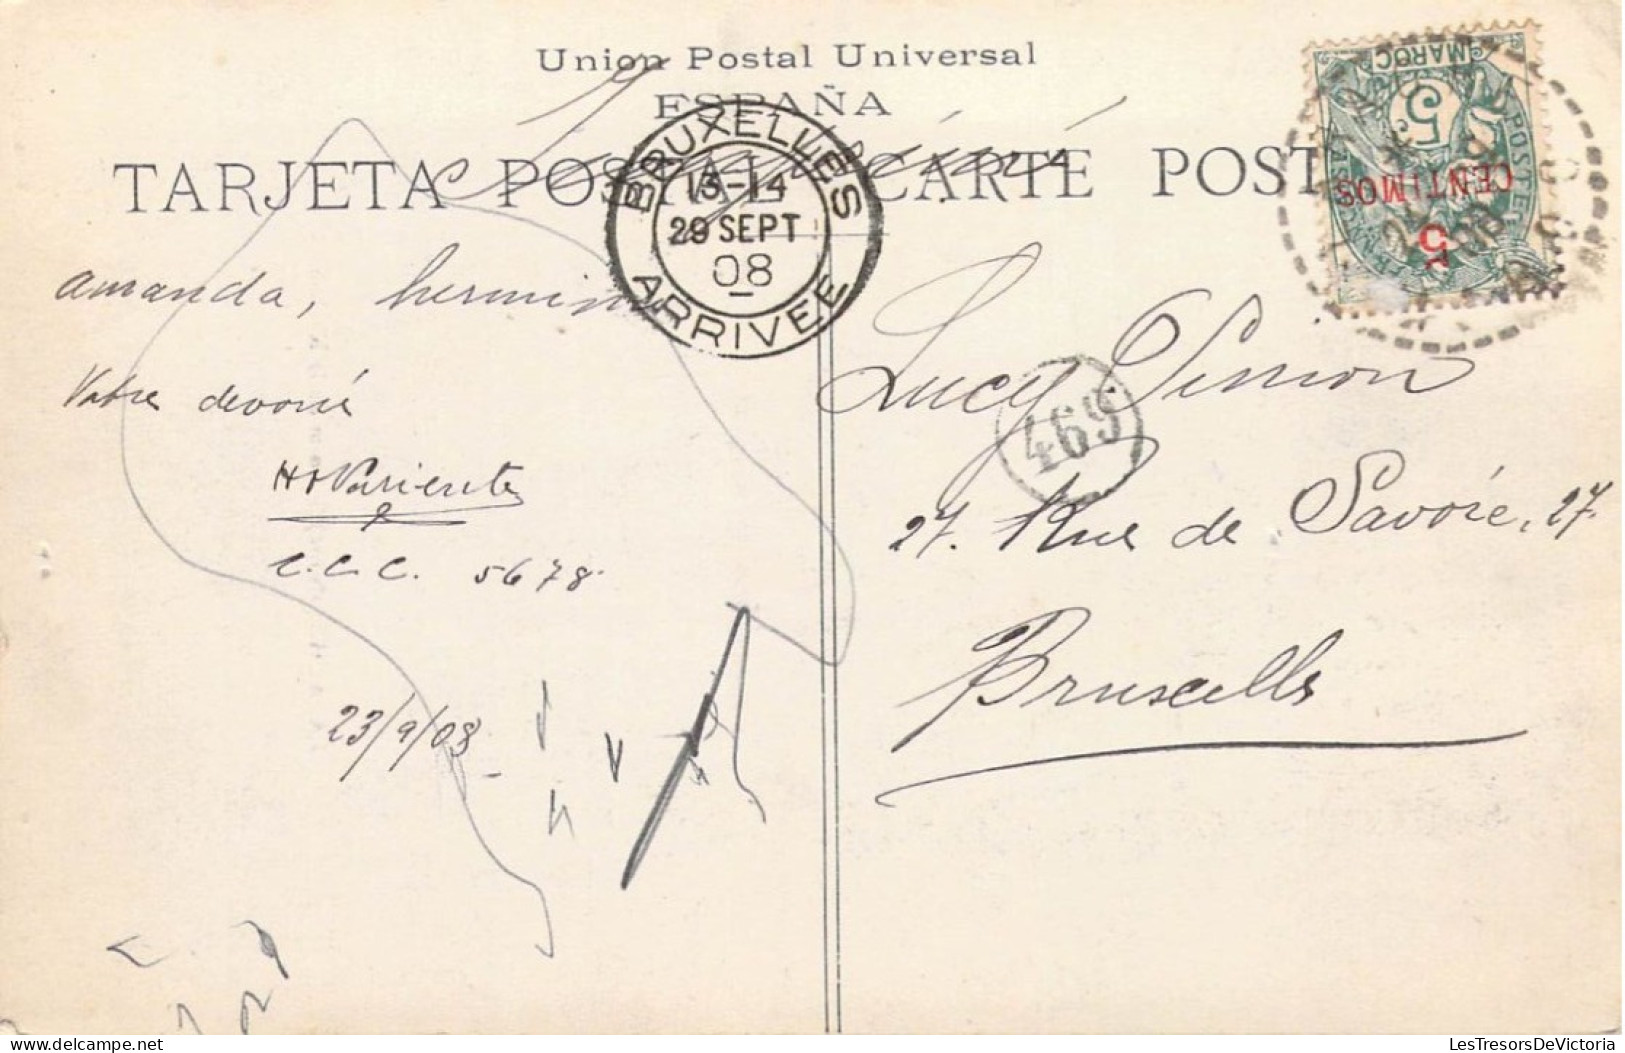 Union Postal Universal
ESPAÑA
TARJETA POSTAL CARTE POST
BRUXELLES
13-14
29 SEPT
08
ARRIVEE
MAROC
5
5
CENTIMOS
amanda,
Votre
C.C.C. 5678.
23/9/08
Lucy Simon
469
27. Rue de Savoie, 27.
Bruxelles
LesTresorsDeVictoria
www.delcampe.net
LesTresorsDeVictoria